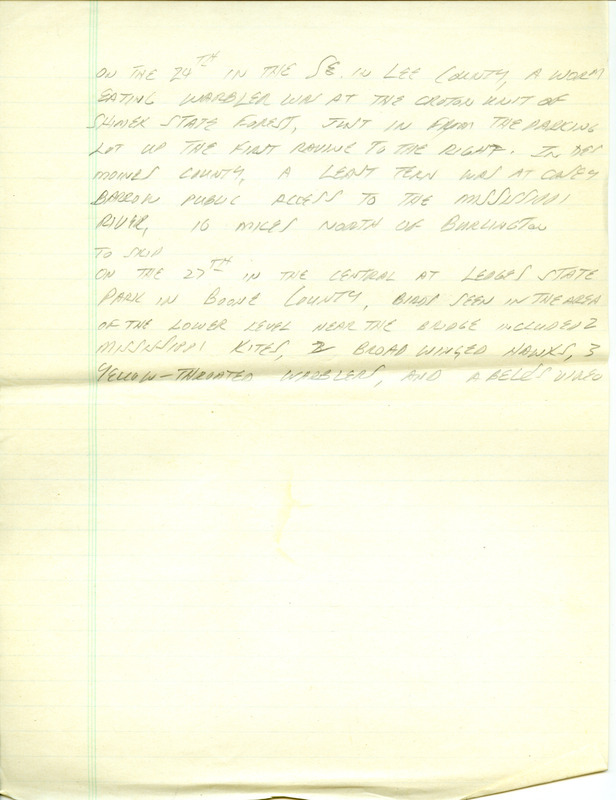 ON THE 24TH IN THE SE. IN LEE COUNTY, A WORM
EATING WARBLER WAS AT THE CROTON UNIT OF
SHIMEK STATE FOREST, JUST IN FROM THE PARKING
LOT UP THE FIRST RAVINE TO THE RIGHT. IN DES
MOINES COUNTY, A LEAST TERN WAS AT CASEY
BARROW PUBLIC ACCESS TO THE MISSISSIPPI
RIVER, 10 MILES NORTH OF BURLINGTON
TO SKIP
ON THE 27TH IN THE CENTRAL AT LEDGES STATE
PARK IN BOONE COUNTY, BIRDS SEEN IN THE AREA
OF THE LOWER LEVEL NEAR THE BRIDGE INCLUDED 2
MISSISSIPPI KITES, 2 BROAD WINGED HAWKS, 3
YELLOW-THROATED WARBLERS, AND A BELL'S VIREO